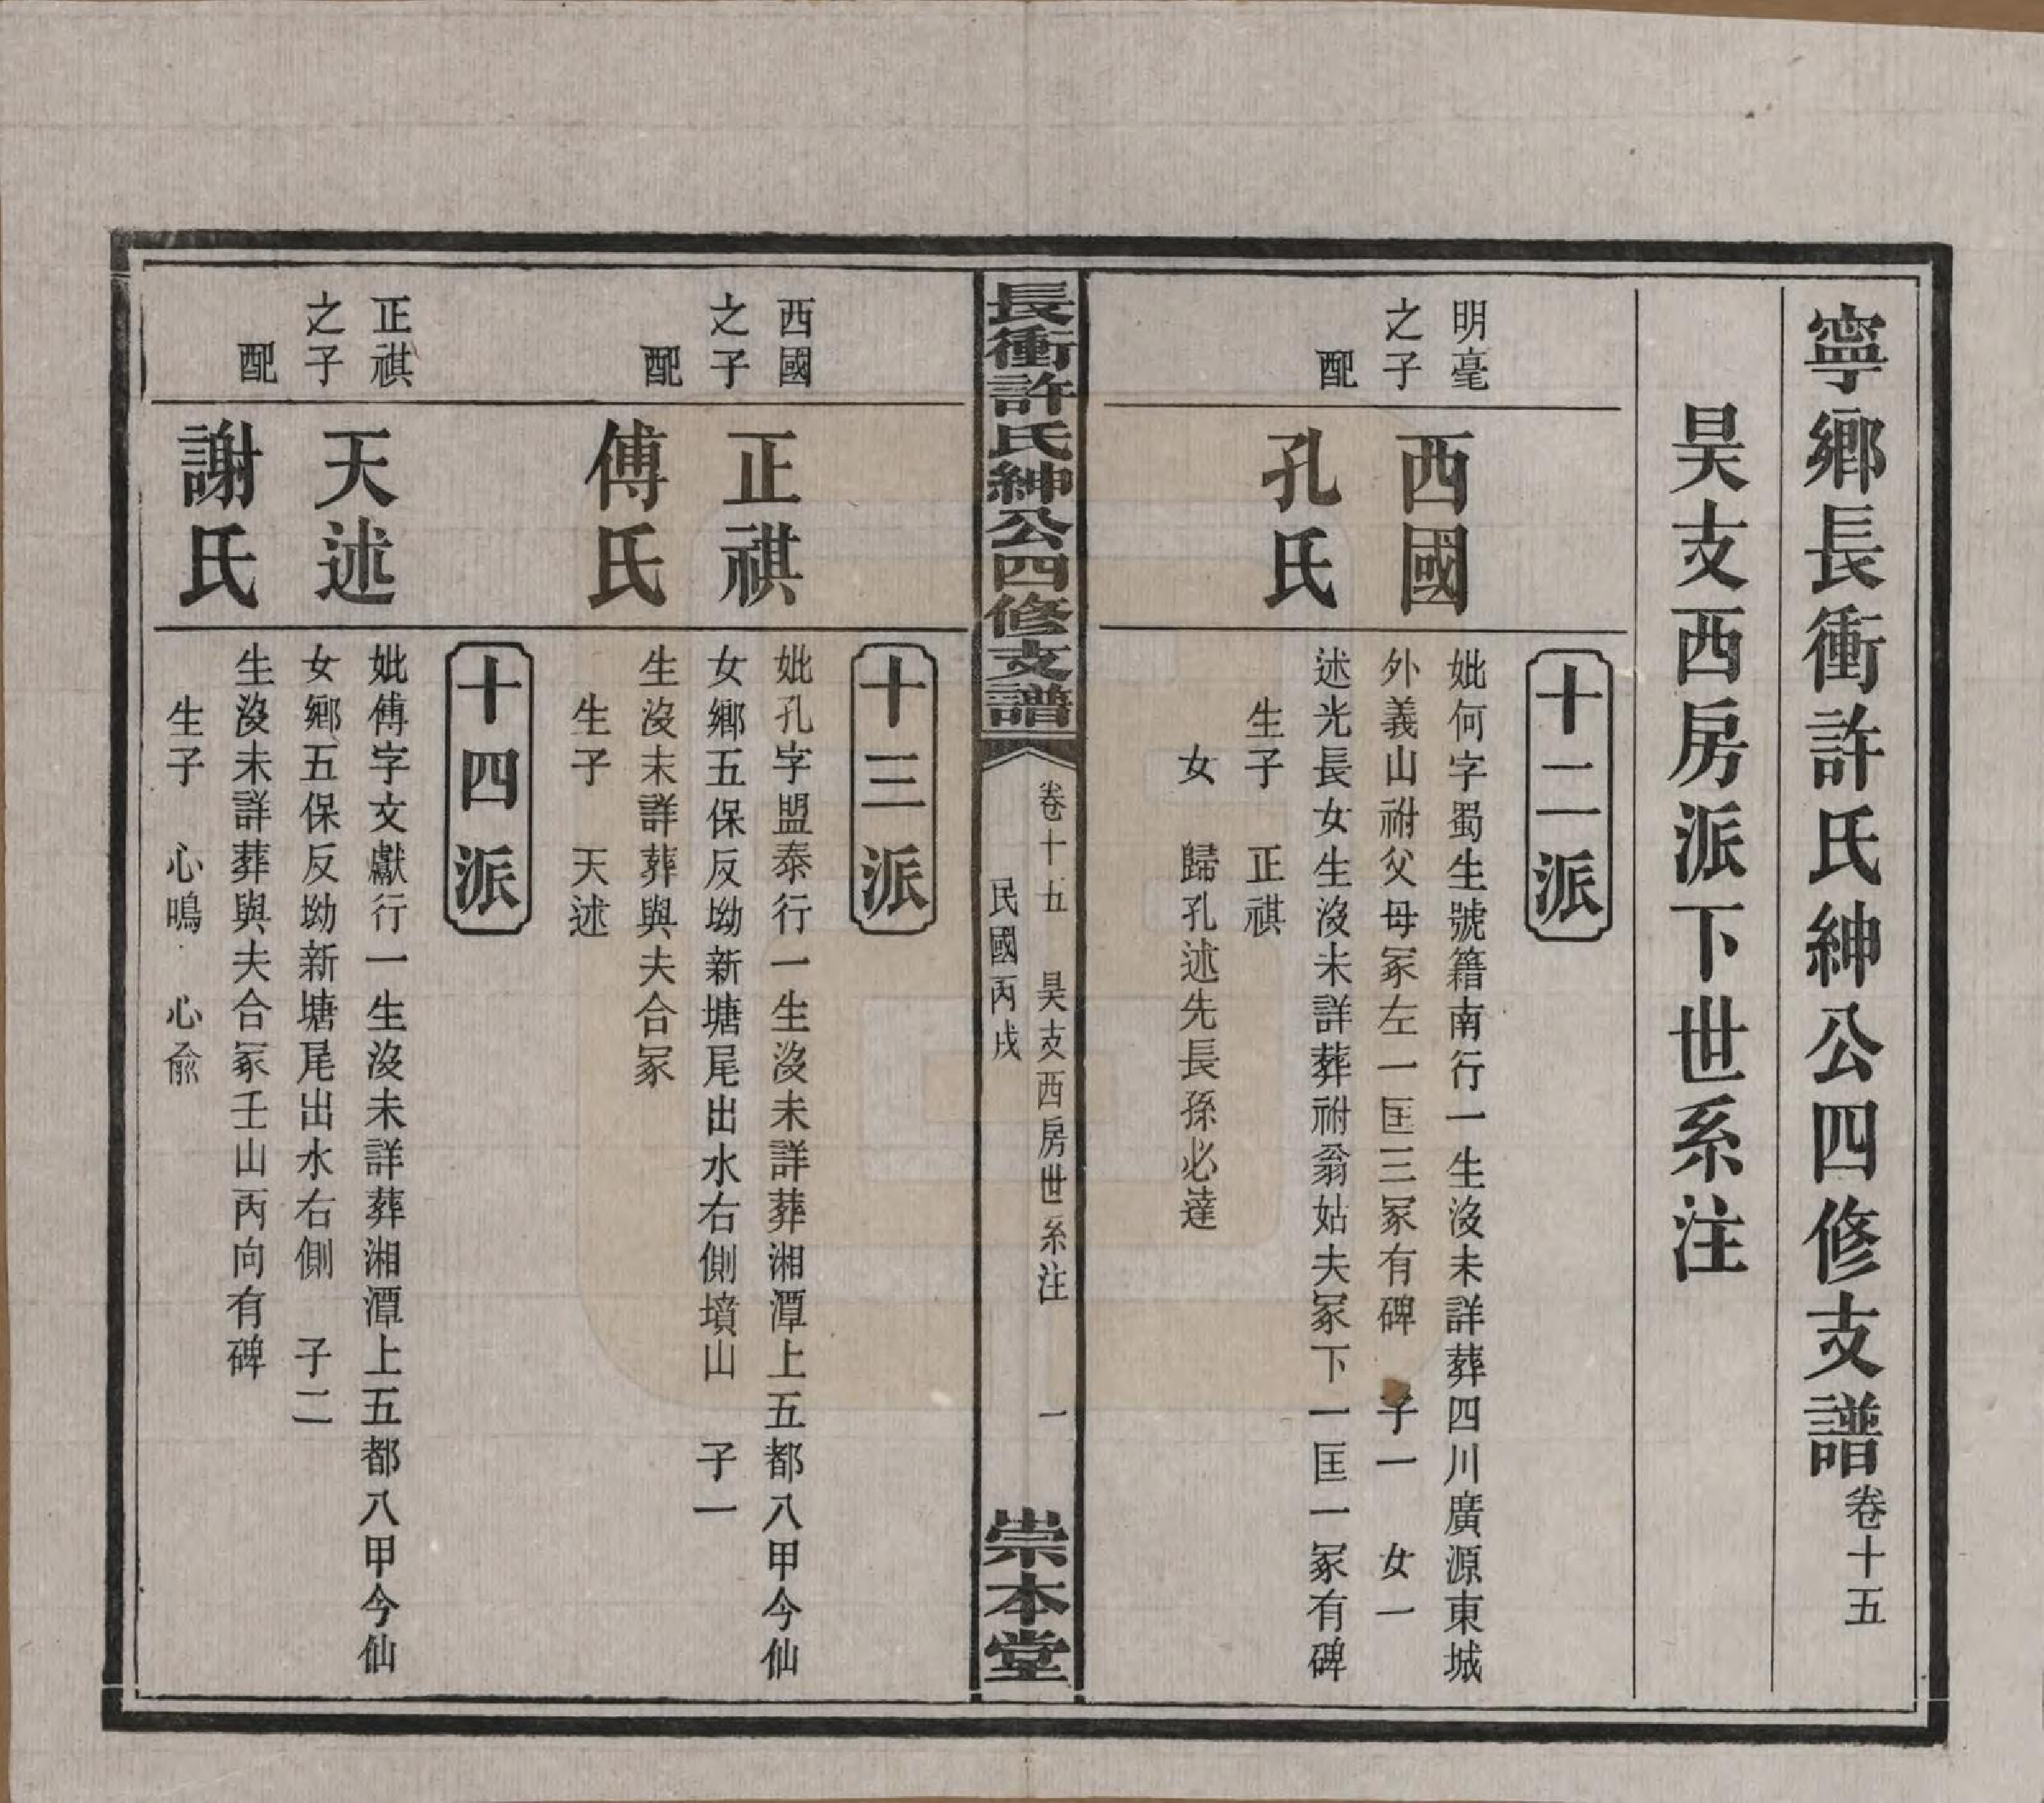 寧鄉長衝許氏紳公四修支譜卷十五
昊支西房派下世系注
十二派
明毫
之子
西國
妣何字蜀生號籍南行一生沒未詳葬四川廣源東城
外義山祔父母冢左一匡三冢有碑 子一 女一
配
孔氏
述光長女生沒未詳葬祔翁姑夫冢下一匡一冢有碑
生子 正祺
女 歸孔述先長孫必達
長衝許氏紳公四修支譜
卷十五 昊支西房世系注 一
民國丙戌
崇本堂
十三派
西國
之子
正祺
妣孔字盟泰行一生沒未詳葬湘潭上五都八甲今仙
女鄉五保反坳新塘尾出水右側墳山 子一
配
傅氏
生沒未詳葬與夫合冢
生子 天述
十四派
正祺
之子
天述
妣傅字文獻行一生沒未詳葬湘潭上五都八甲今仙
女鄉五保反坳新塘尾出水右側 子二
配
謝氏
生沒未詳葬與夫合冢壬山丙向有碑
生子 心鳴 心俞